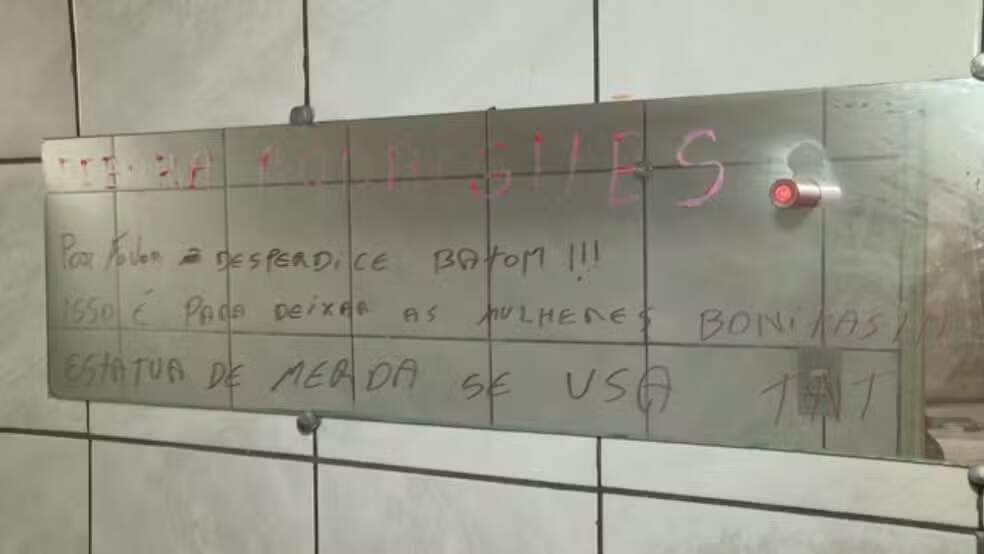 POR FAVOR DESPERDICE BATOM !!!
ISSO É PARA DEIXAR AS MULHERES BONITAS
ESTATUA DE MERDA SE USA TNT